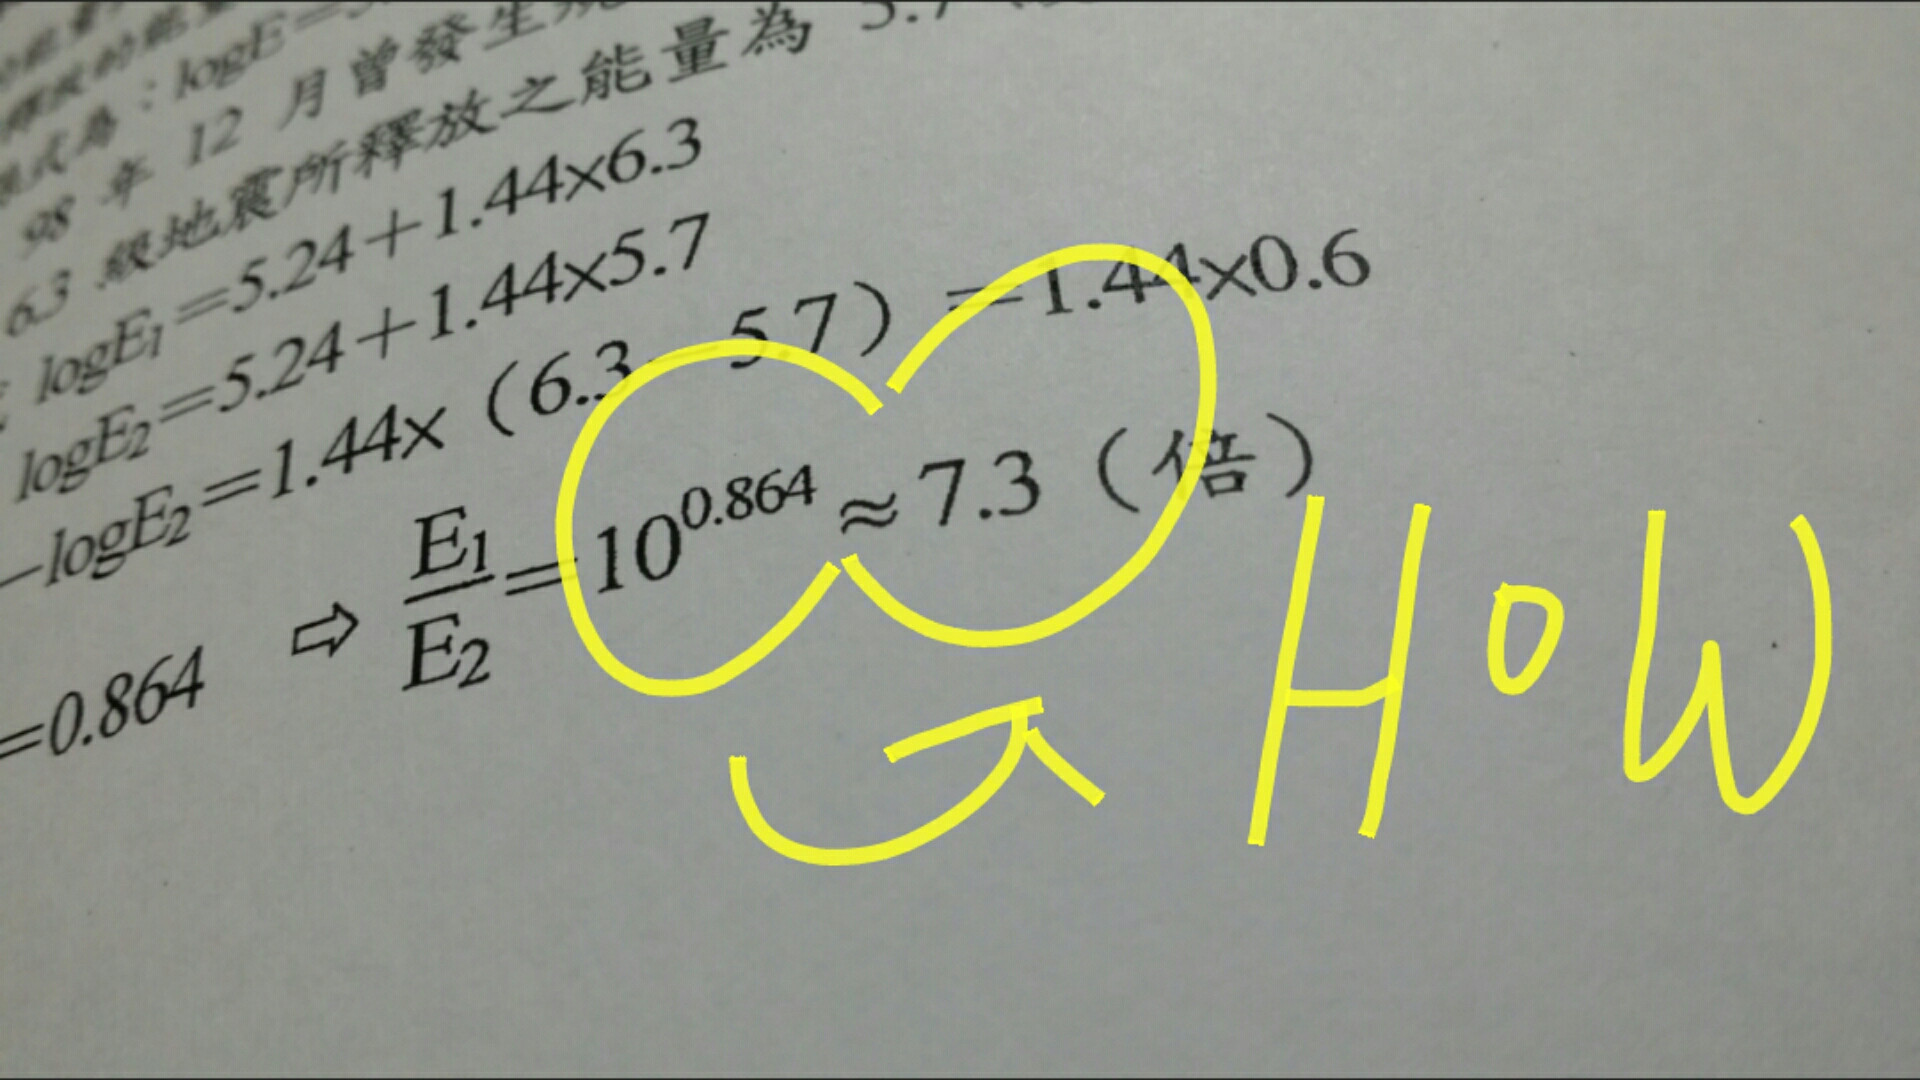 式為：logE＝5.
98 年 12 月曾發生規
6.3 級地震所釋放之能量為 5.7
logE₁＝5.24＋1.44×6.3
logE₂＝5.24＋1.44×5.7
－logE₂＝1.44×（6.3－5.7）＝1.44×0.6
＝0.864 ⇨ E₁/E₂＝10^0.864≈7.3（倍）
HoW